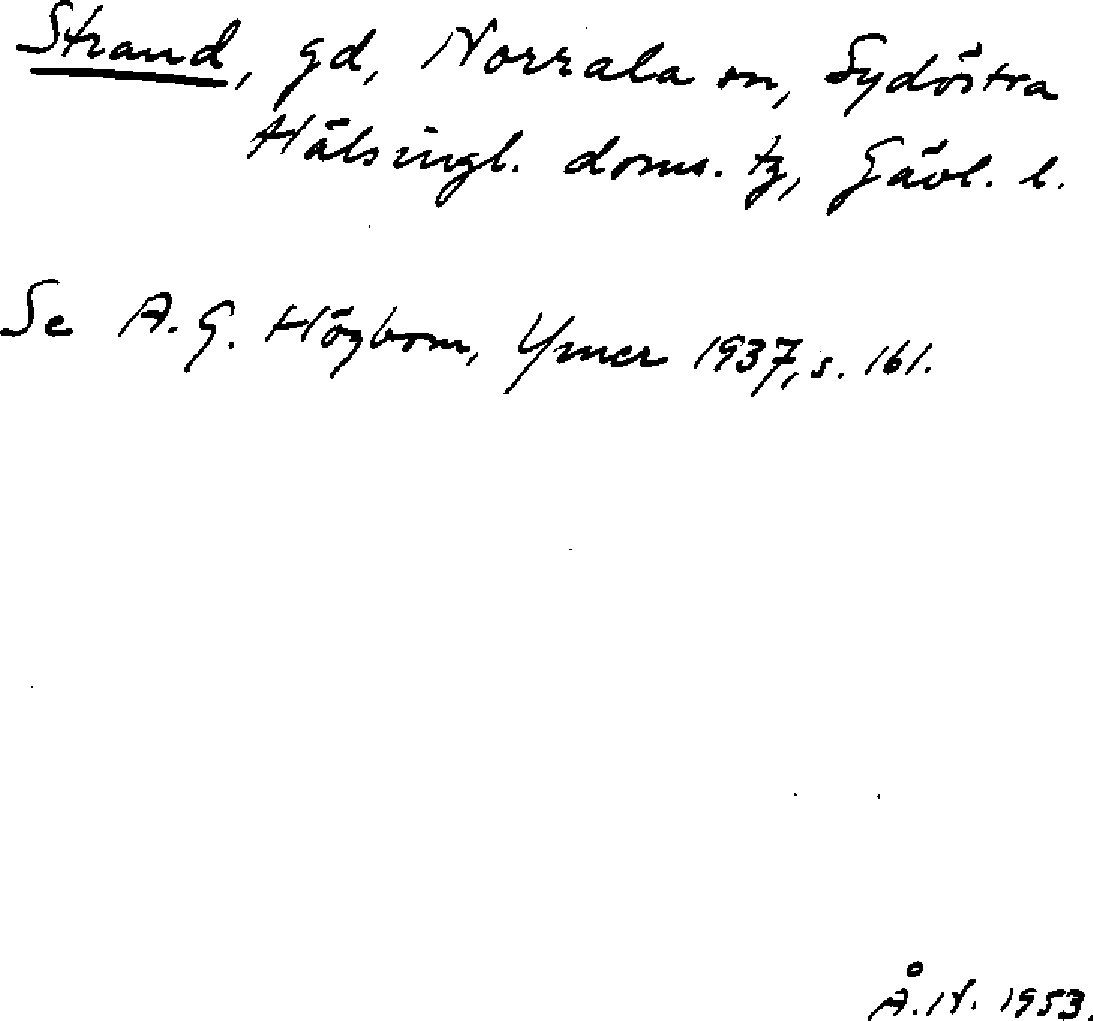 Strand, gd, Norrala sn, Sydöstra
Hälsingl. doms. tg, Gävl. l.
Se A. G. Högbom, Ymer 1937, s. 161.
Å. N. 1953.